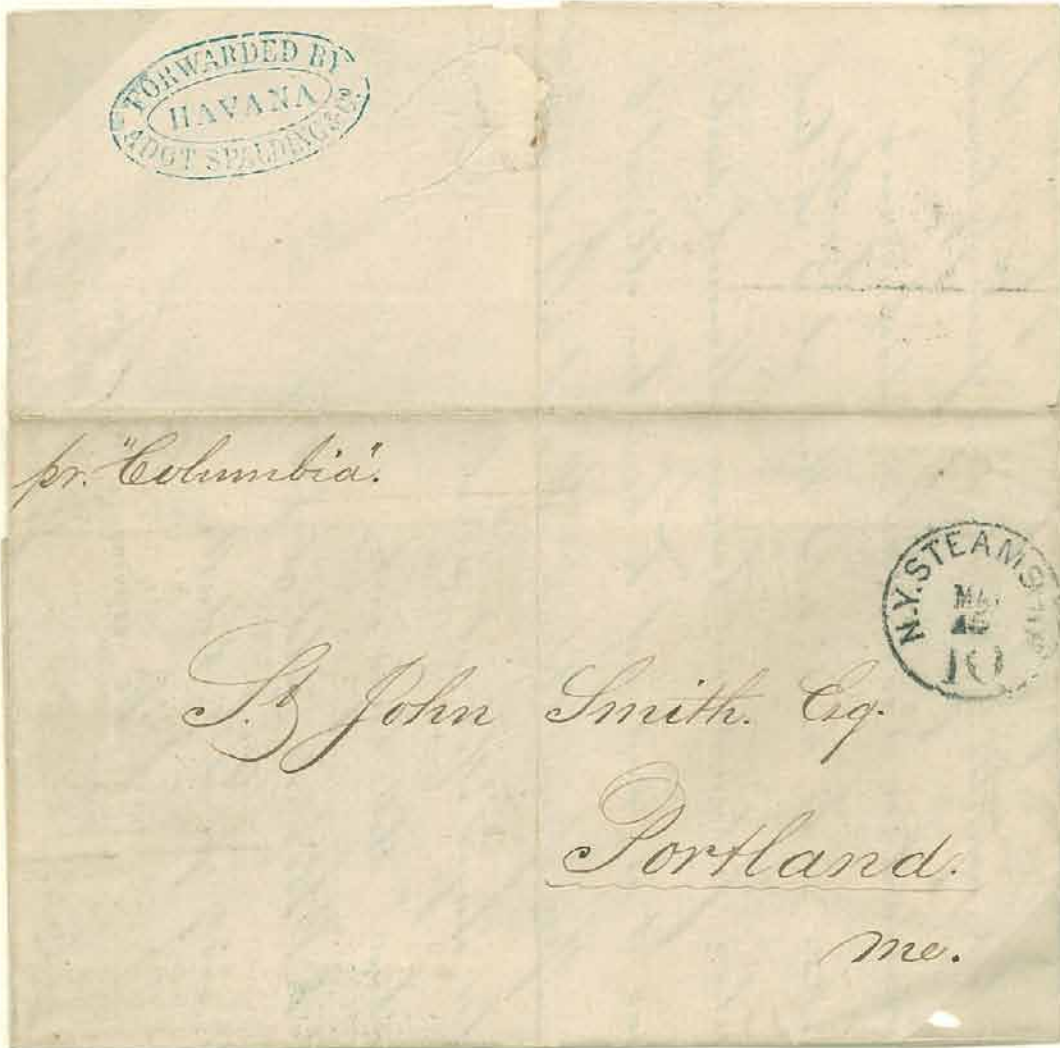 FORWARDED BY
HAVANA
ADOT SPALDING & Co.
pr. "Columbia".
N.Y. STEAMSHIP
10
St. John Smith. Esq.
Portland.
Me.